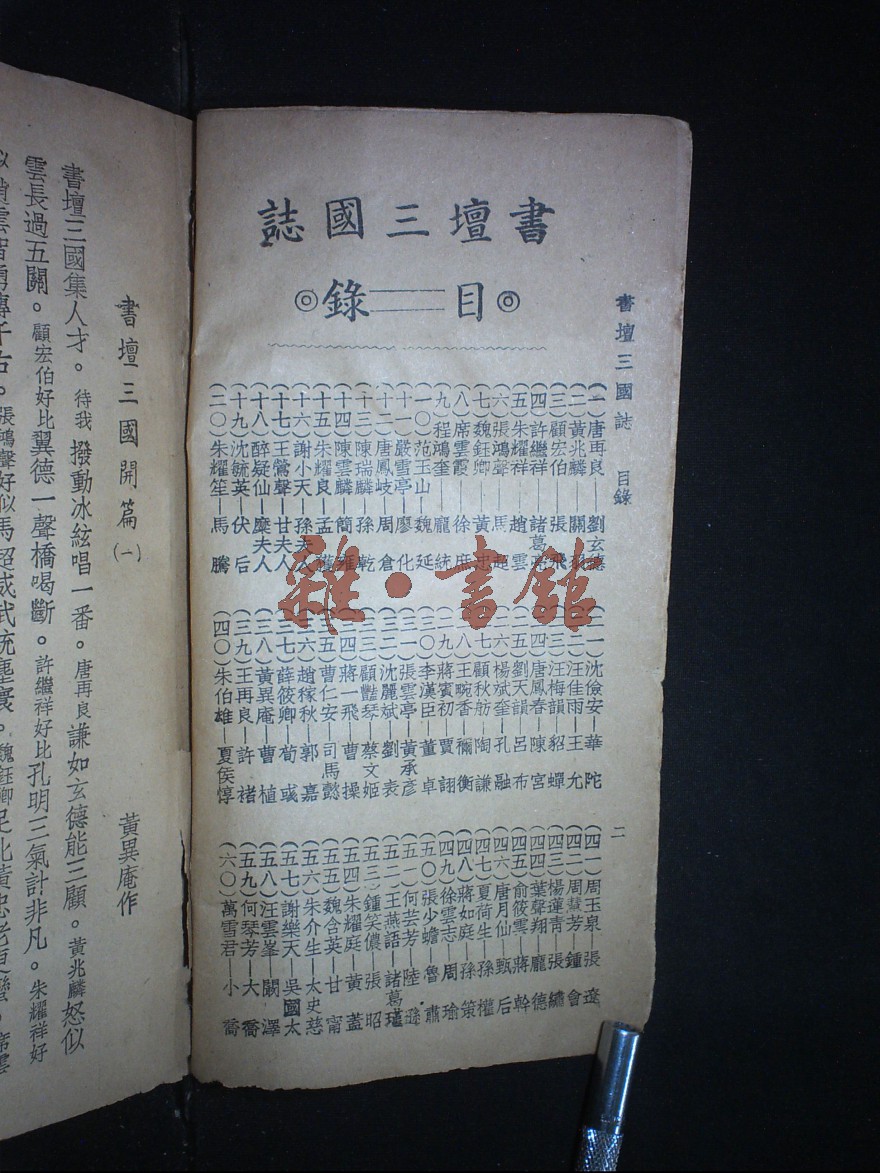 書壇三國誌
◎目錄◎
書壇三國誌 目錄
二
(一)唐再良—劉玄德
(二)黃兆麟—關羽
(三)顧宏伯—張飛
(四)許繼祥—諸葛亮
(五)朱耀祥—趙雲
(六)張鴻聲—馬超
(七)魏鈺卿—黃忠
(八)席雲霞—徐庶
(九)程鴻奎—龐統
(一〇)范玉山—魏延
(十一)嚴雪亭—廖化
(十二)唐鳳岐—周倉
(十三)陳瑞麟—孫乾
(十四)陳雲麟—簡雍
(十五)朱耀良—孟獲
(十六)謝小天—孫夫人
(十七)王鶯聲—甘夫人
(十八)醉疑仙—糜夫人
(十九)沈毓英—伏后
(二〇)朱耀笙—馬騰
(二一)沈儉安—華陀
(二二)汪佳雨—王允
(二三)汪梅韻—貂蟬
(二四)唐鳳春—陳宮
(二五)劉天韻—呂布
(二六)楊斌奎—孔融
(二七)顧秋舫—陶謙
(二八)王畹香—禰衡
(二九)蔣賓初—賈詡
(三〇)李漢臣—董卓
(三一)張雲亭—黃承彥
(三二)沈麗斌—劉表
(三三)顧豔琴—蔡文姬
(三四)蔣一飛—曹操
(三五)曹仁安—司馬懿
(三六)趙稼秋—郭嘉
(三七)薛筱卿—荀彧
(三八)黃異庵—曹植
(三九)王再良—許褚
(四〇)朱伯雄—夏侯惇
(四一)周玉泉—張遼
(四二)周慧芳—鍾會
(四三)楊蓮青—張繡
(四四)葉聲翔—龐德
(四五)俞筱雲—蔣幹
(四六)唐月仙—甄后
(四七)夏荷生—孫權
(四八)蔣如庭—孫策
(四九)徐雲志—周瑜
(五〇)張少蟾—魯肅
(五一)何芸芳—陸遜
(五二)王燕語—諸葛瑾
(五三)鍾笑儂—張昭
(五四)朱耀庭—黃蓋
(五五)魏含英—甘甯
(五六)朱介生—太史慈
(五七)謝樂天—吳國太
(五八)汪雲峯—闞澤
(五九)何琴芳—大喬
(六〇)萬雪君—小喬
書壇三國開篇(一) 黃異庵作
書壇三國集人才。待我撥動冰絃唱一番。唐再良謙如玄德能三顧。黃兆麟怒似
雲長過五關。顧宏伯好比翼德一聲橋喝斷。許繼祥好比孔明三氣計非凡。朱耀祥好
似趙雲智勇傳千古。張鴻聲好似馬超威武統塵寰。魏鈺卿足比黃忠老更蠻。席雲